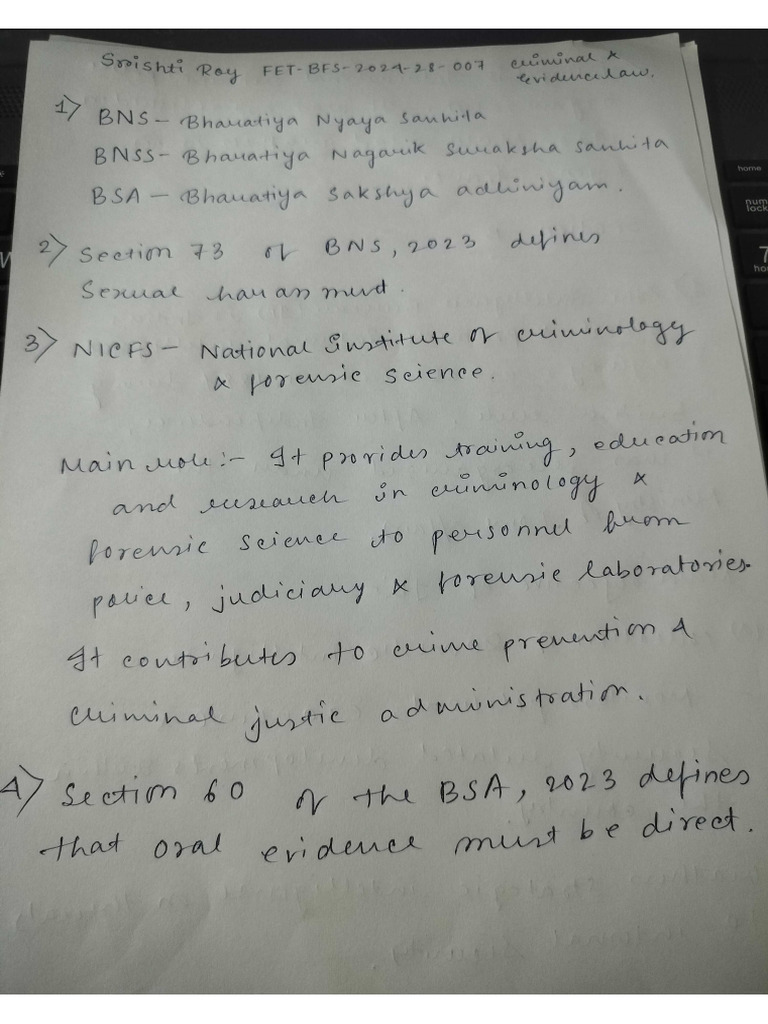 Srishti Roy FET-BFS-2024-28-007 criminal &
evidence law.
1) BNS - Bharatiya Nyaya Sanhita
BNSS - Bharatiya Nagarik Suraksha Sanhita
BSA - Bharatiya Sakshya adhiniyam.
2) Section 73 of BNS, 2023 defines
Sexual harassment.
3) NICFS - National Institute of criminology
& forensic science.
Main role:- It provides training, education
and research in criminology &
forensic science to personnel from
police, judiciary & forensic laboratories.
It contributes to crime prevention &
criminal justic administration.
4) Section 60 of the BSA, 2023 defines
that oral evidence must be direct.
home
num
lock
7